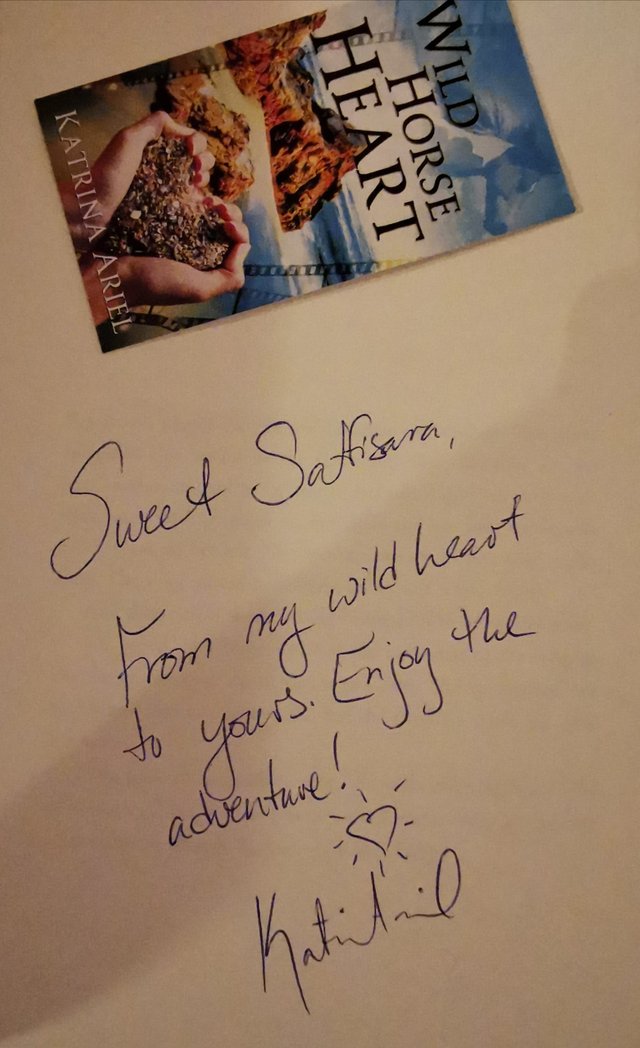 WILD
HORSE
HEART
KATRINA ARIEL
Sweet Sattisara,
From my wild heart
to yours. Enjoy the
adventure!
Katrina Ariel